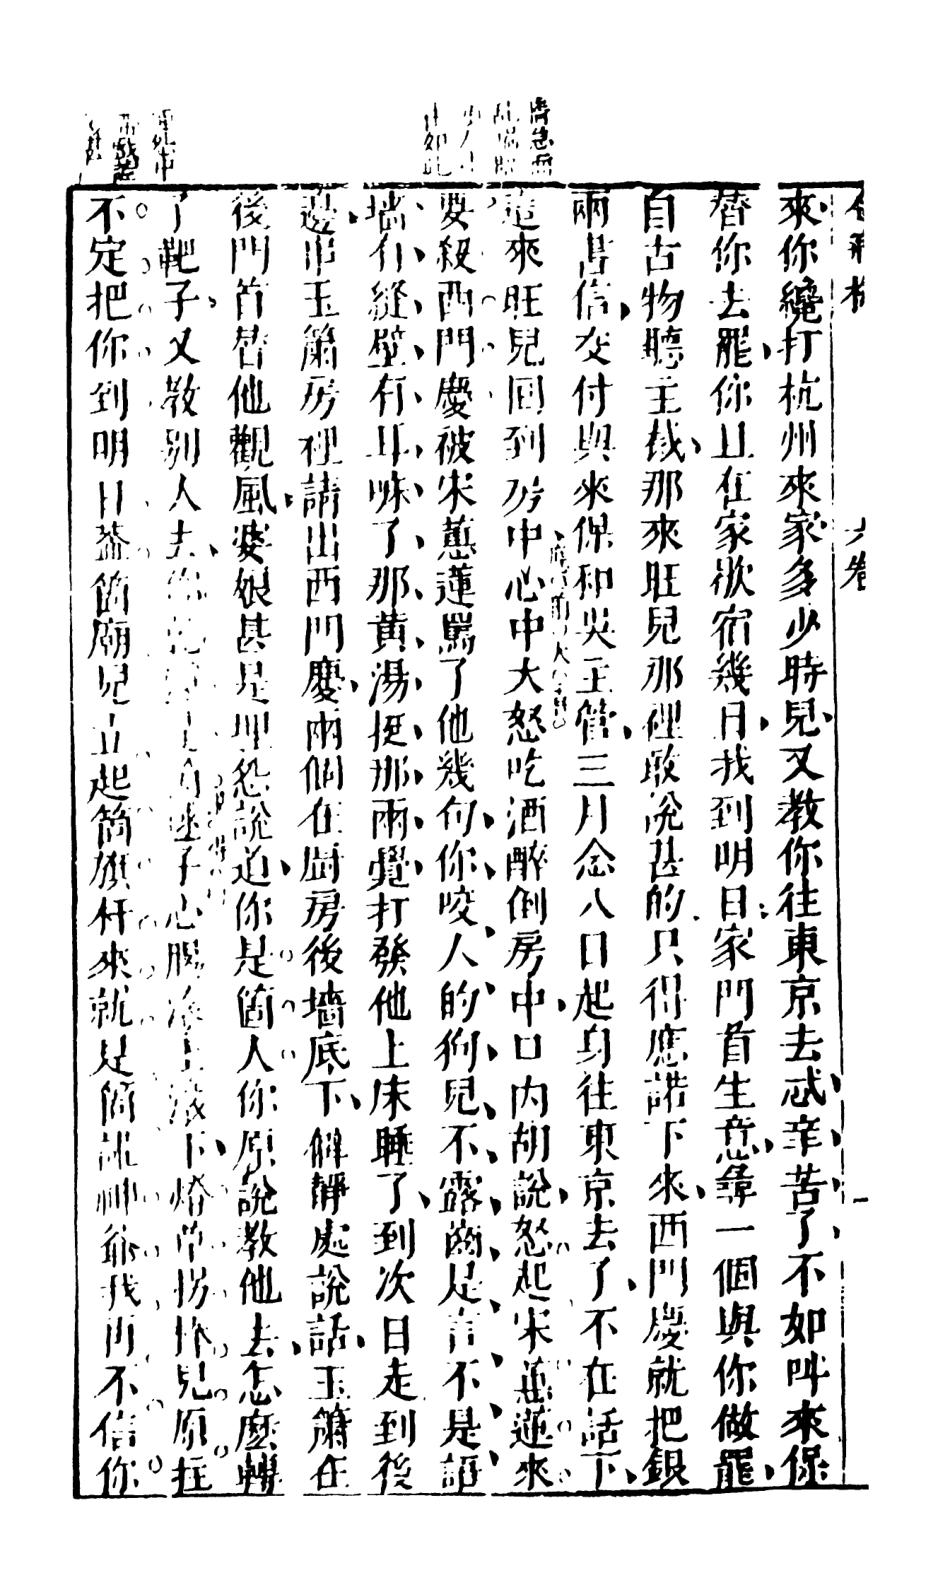 金瓶梅 六卷
來你纔打杭州來家多少時兒又教你往東京去忒辛苦了不如叫來保
替你去罷你且在家歇宿幾日我到明日家門首生意尋一個與你做罷
自古物聽主裁那來旺兒那裡敢說甚的只得應諾下來西門慶就把銀
兩書信交付與來保和吳主管三月念八日起身往東京去了不在話下
這來旺兒回到房中心中大怒吃酒醉倒房中口內胡說怒起宋蕙蓮來
要殺西門慶被宋蕙蓮罵了他幾句你咬人的狗兒不露齒是言不是語
墻有縫壁有耳味了那黃湯挺那兩覺打發他上床睡了到次日走到後
邊串玉簫房裡請出西門慶兩個在厨房後墻底下僻靜處說話玉簫在
後門首替他觀風婆娘甚是埋怨說道你是箇人你原說教他去怎麼轉
了靶子又教別人去你 子心腸滾上滾下燈草拐棒兒原拄
不定把你到明日葢箇廟兒立起箇旗杆來就是箇謊神爺我再不信你